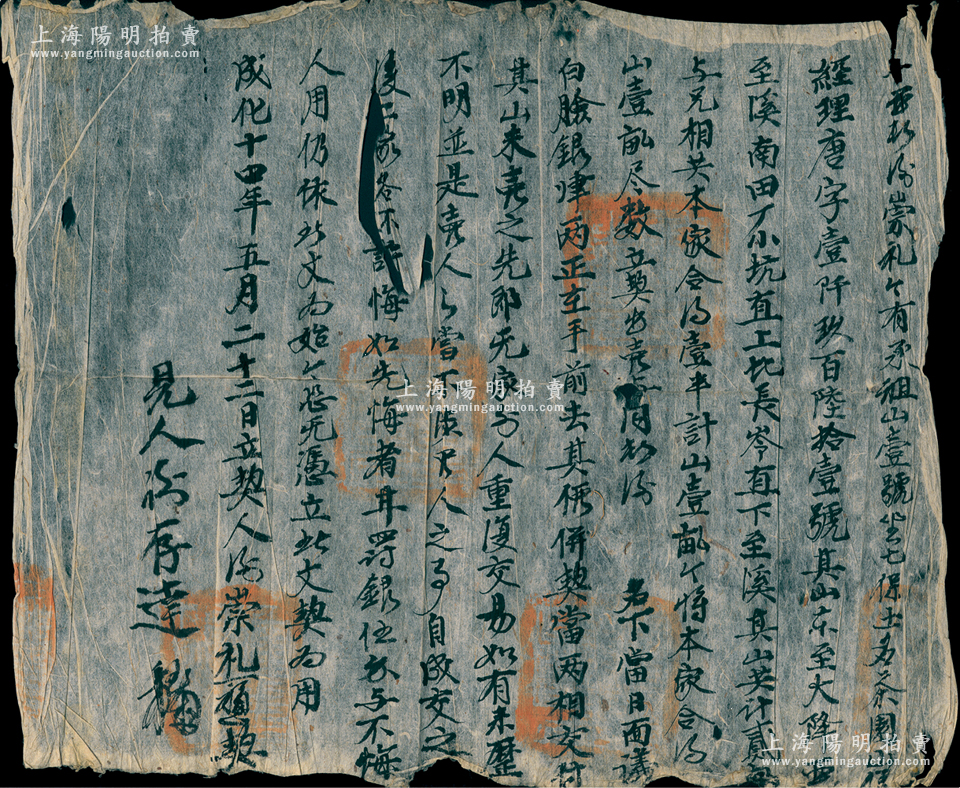 崇礼今有承祖山壹號坐七保土名
經理唐字壹阡玖百陸拾壹號其山東至大降西
至溪南田下小坑直上北長岺直下至溪其山共計貳畝
与兄相共本家合得壹半計山壹畝今將本家合得
山壹畝尽數立契出賣 名下當日面議
白臉銀 两正在手前去其價併契當两相交付
其山未賣之先即无家外人重復交易如有來歷
不明並是賣人之當不及買人之事自成交之
後二家各不許悔如先悔者甘罸銀伍 与不悔
人用仍依此文為始今恐无憑立此文契為用
成化十四年五月二十二日立契人 崇礼 契
見人 存達
上海陽明拍賣
www.yangmingauction.com
上海陽明拍賣
www.yangmingauction.com
上海陽明拍賣
www.yangmingauction.com